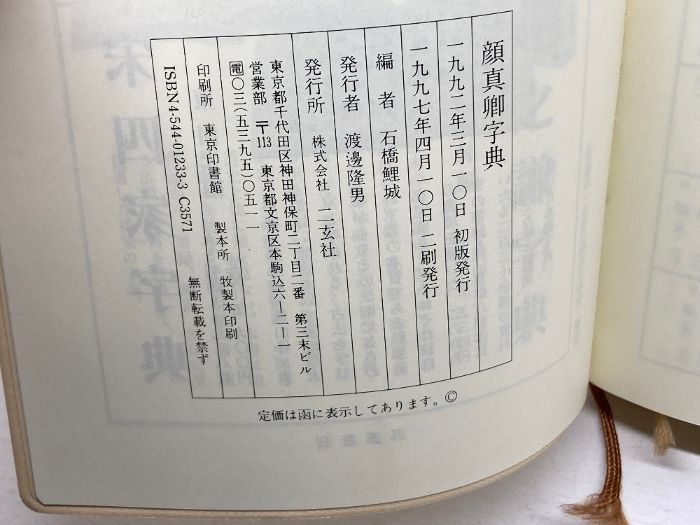 顔真卿字典
一九九二年三月一〇日 初版発行
一九九七年四月一〇日 二刷発行
編者 石橋鯉城
発行者 渡邊隆男
発行所 株式会社 二玄社
東京都千代田区神田神保町二丁目二番 第三末ビル
営業部 〒113 東京都文京区本駒込六—二—一
電〇三(五三九五)〇五一一
印刷所 東京印書館 製本所 牧製本印刷
ISBN4-544-01233-3 C3571 無断転載を禁ず
定価は函に表示してあります。©